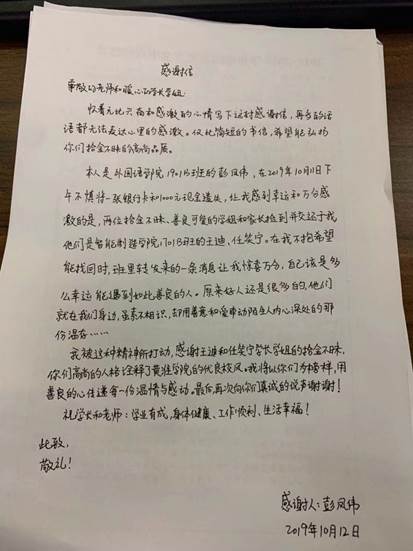 感谢信
尊敬的老师和暖心的学长学姐：
怀着无比兴奋和感激的心情写下这封感谢信，再多的话
语都无法表达心里的感激。仅此简短的书信，希望能弘扬
你们拾金不昧的高尚品质。
本人是外国语学院1901B班的彭凤伟，在2019年10月11日下
午不慎将一张银行卡和1000元现金遗失，让我感到幸运和万分感
激的是，两位拾金不昧、善良可爱的学姐和学长捡到并交还于我
他们是智能制造学院1701B班的王迪、任笑宁。在我不抱希望
能找回时，班里转发来的一条消息让我惊喜万分，自己该是多
么幸运能遇到如此善良的人。原来好人还是很多的，他们
就在我们身边，虽素不相识，却用善意和爱牵动陌生人内心深处的那
份温存……
我被这种精神所打动，感谢王迪和任笑宁学长学姐的拾金不昧，
你们高尚的人格诠释了黄淮学院的优良校风。我将以你们为榜样，用
善良的心传递每一份温情与感动。最后再次向你们真诚的说声谢谢！
祝学长和老师：学业有成，身体健康、工作顺利、生活幸福！
此致，
敬礼！
感谢人：彭凤伟
2019年10月12日